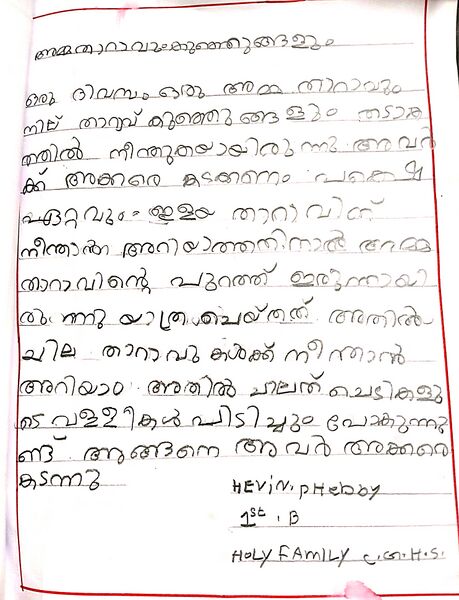 അമ്മതാറാവുംകുഞ്ഞുങ്ങളും
ഒരു ദിവസം ഒരു അമ്മ താറാവും
താറാവ് കുഞ്ഞുങ്ങളും തടാക
ത്തിൽ നീന്തുകയായിരുന്നു അവർ
ക്ക് അക്കരെ കടക്കണം പക്ഷെ
ഏറ്റവും ഇളയ താറാവിന്
നീന്താൻ അറിയാത്തതിനാൽ അമ്മ
താറാവിന്റെ പുറത്ത് ഇരുന്നായി
രുന്നു യാത്ര ചെയ്തത് അതിൽ
ചില താറാവുകൾക്ക് നീന്താൻ
അറിയാം അതിൽ ചിലത് ചെടികളു
ടെ വള്ളികൾ പിടിച്ചും പോകുന്നു
ണ്ട് അങ്ങനെ അവർ അക്കരെ
കടന്നു
HEVIN. PHEBBY
1st . B
HOLY FAMILY C.G.H.S.